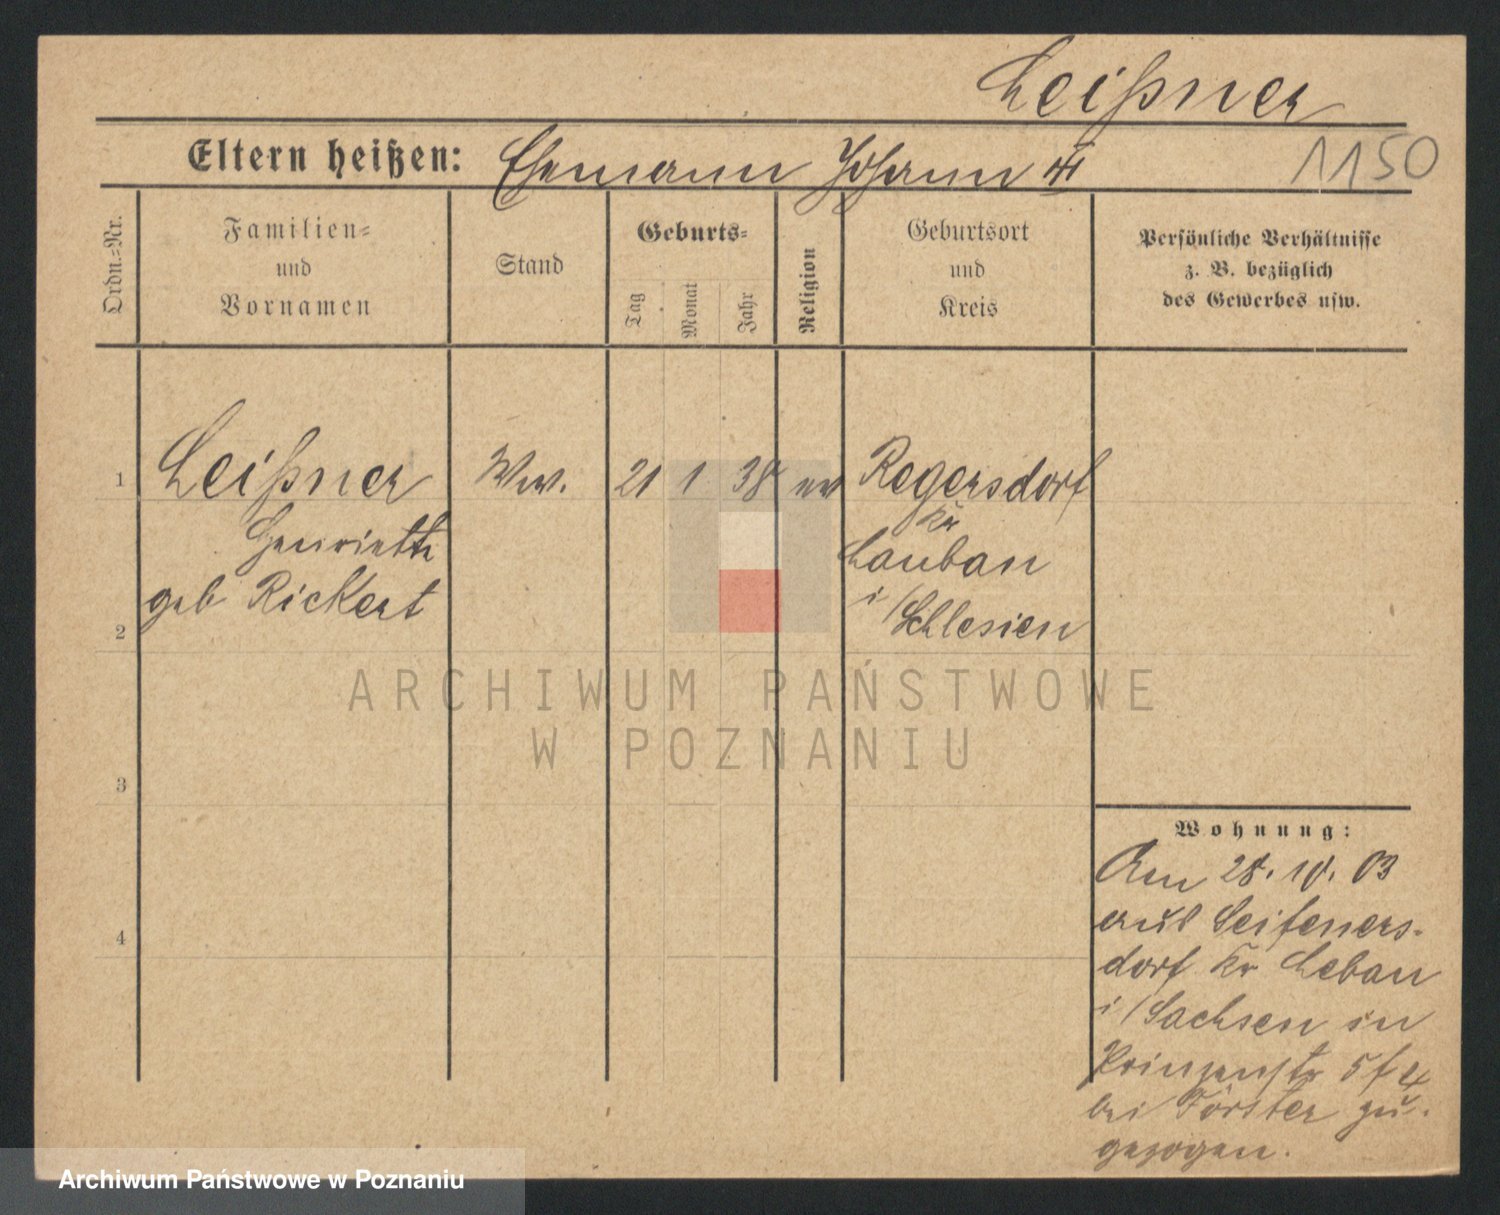 Leißner
Eltern heißen: Ehemann Johann
1150
Ordn.-Nr.
Familien-
und
Vornamen
Stand
Geburts-
Tag
Monat
Jahr
Religion
Geburtsort
und
Kreis
Persönliche Verhältnisse
z. B. bezüglich
des Gewerbes usw.
1
Leißner Ww. 21 1 38 ev Regersdorf
Henriette
geb Rickert
Kr
Lauban
i/Schlesien
2
3
4
ARCHIWUM PAŃSTWOWE
W POZNANIU
Wohnung:
Am 28. 10. 03
aus Seifeners-
dorf Kr Lebau
i/Sachsen in
Prinzenstr 5
bei Förster zu-
gezogen.
Archiwum Państwowe w Poznaniu